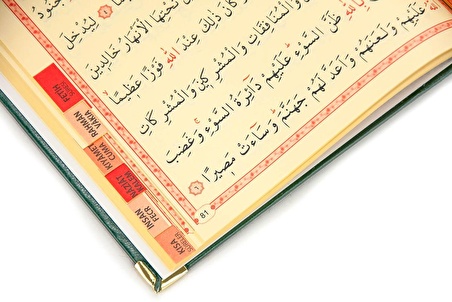 جُنُودُ
لِيُدْخِلَ
تَحْتِهَا الْاَنْهَارُ خَالِدِينَ
كَانَ ذٰلِكَ عِنْدَ اللّٰهِ فَوْزًا عَظِيمًا
وَالْمُنَافِقَاتِ وَالْمُشْرِكِينَ وَالْمُشْرِكَاتِ
ظَنَّ السَّوْءِ عَلَيْهِمْ دَٓائِرَةُ السَّوْءِ وَغَضِبَ
عَلَيْهِمْ وَلَعَنَهُمْ وَاَعَدَّ لَهُمْ جَهَنَّمَ وَسَٓاءَتْ مَصِيرًا
81
FETİH
RAHMAN
VAKIA
KIYAMET
CUMA
NAZİAT
KALEM
İNSAN
FECR
KISA
SURELER